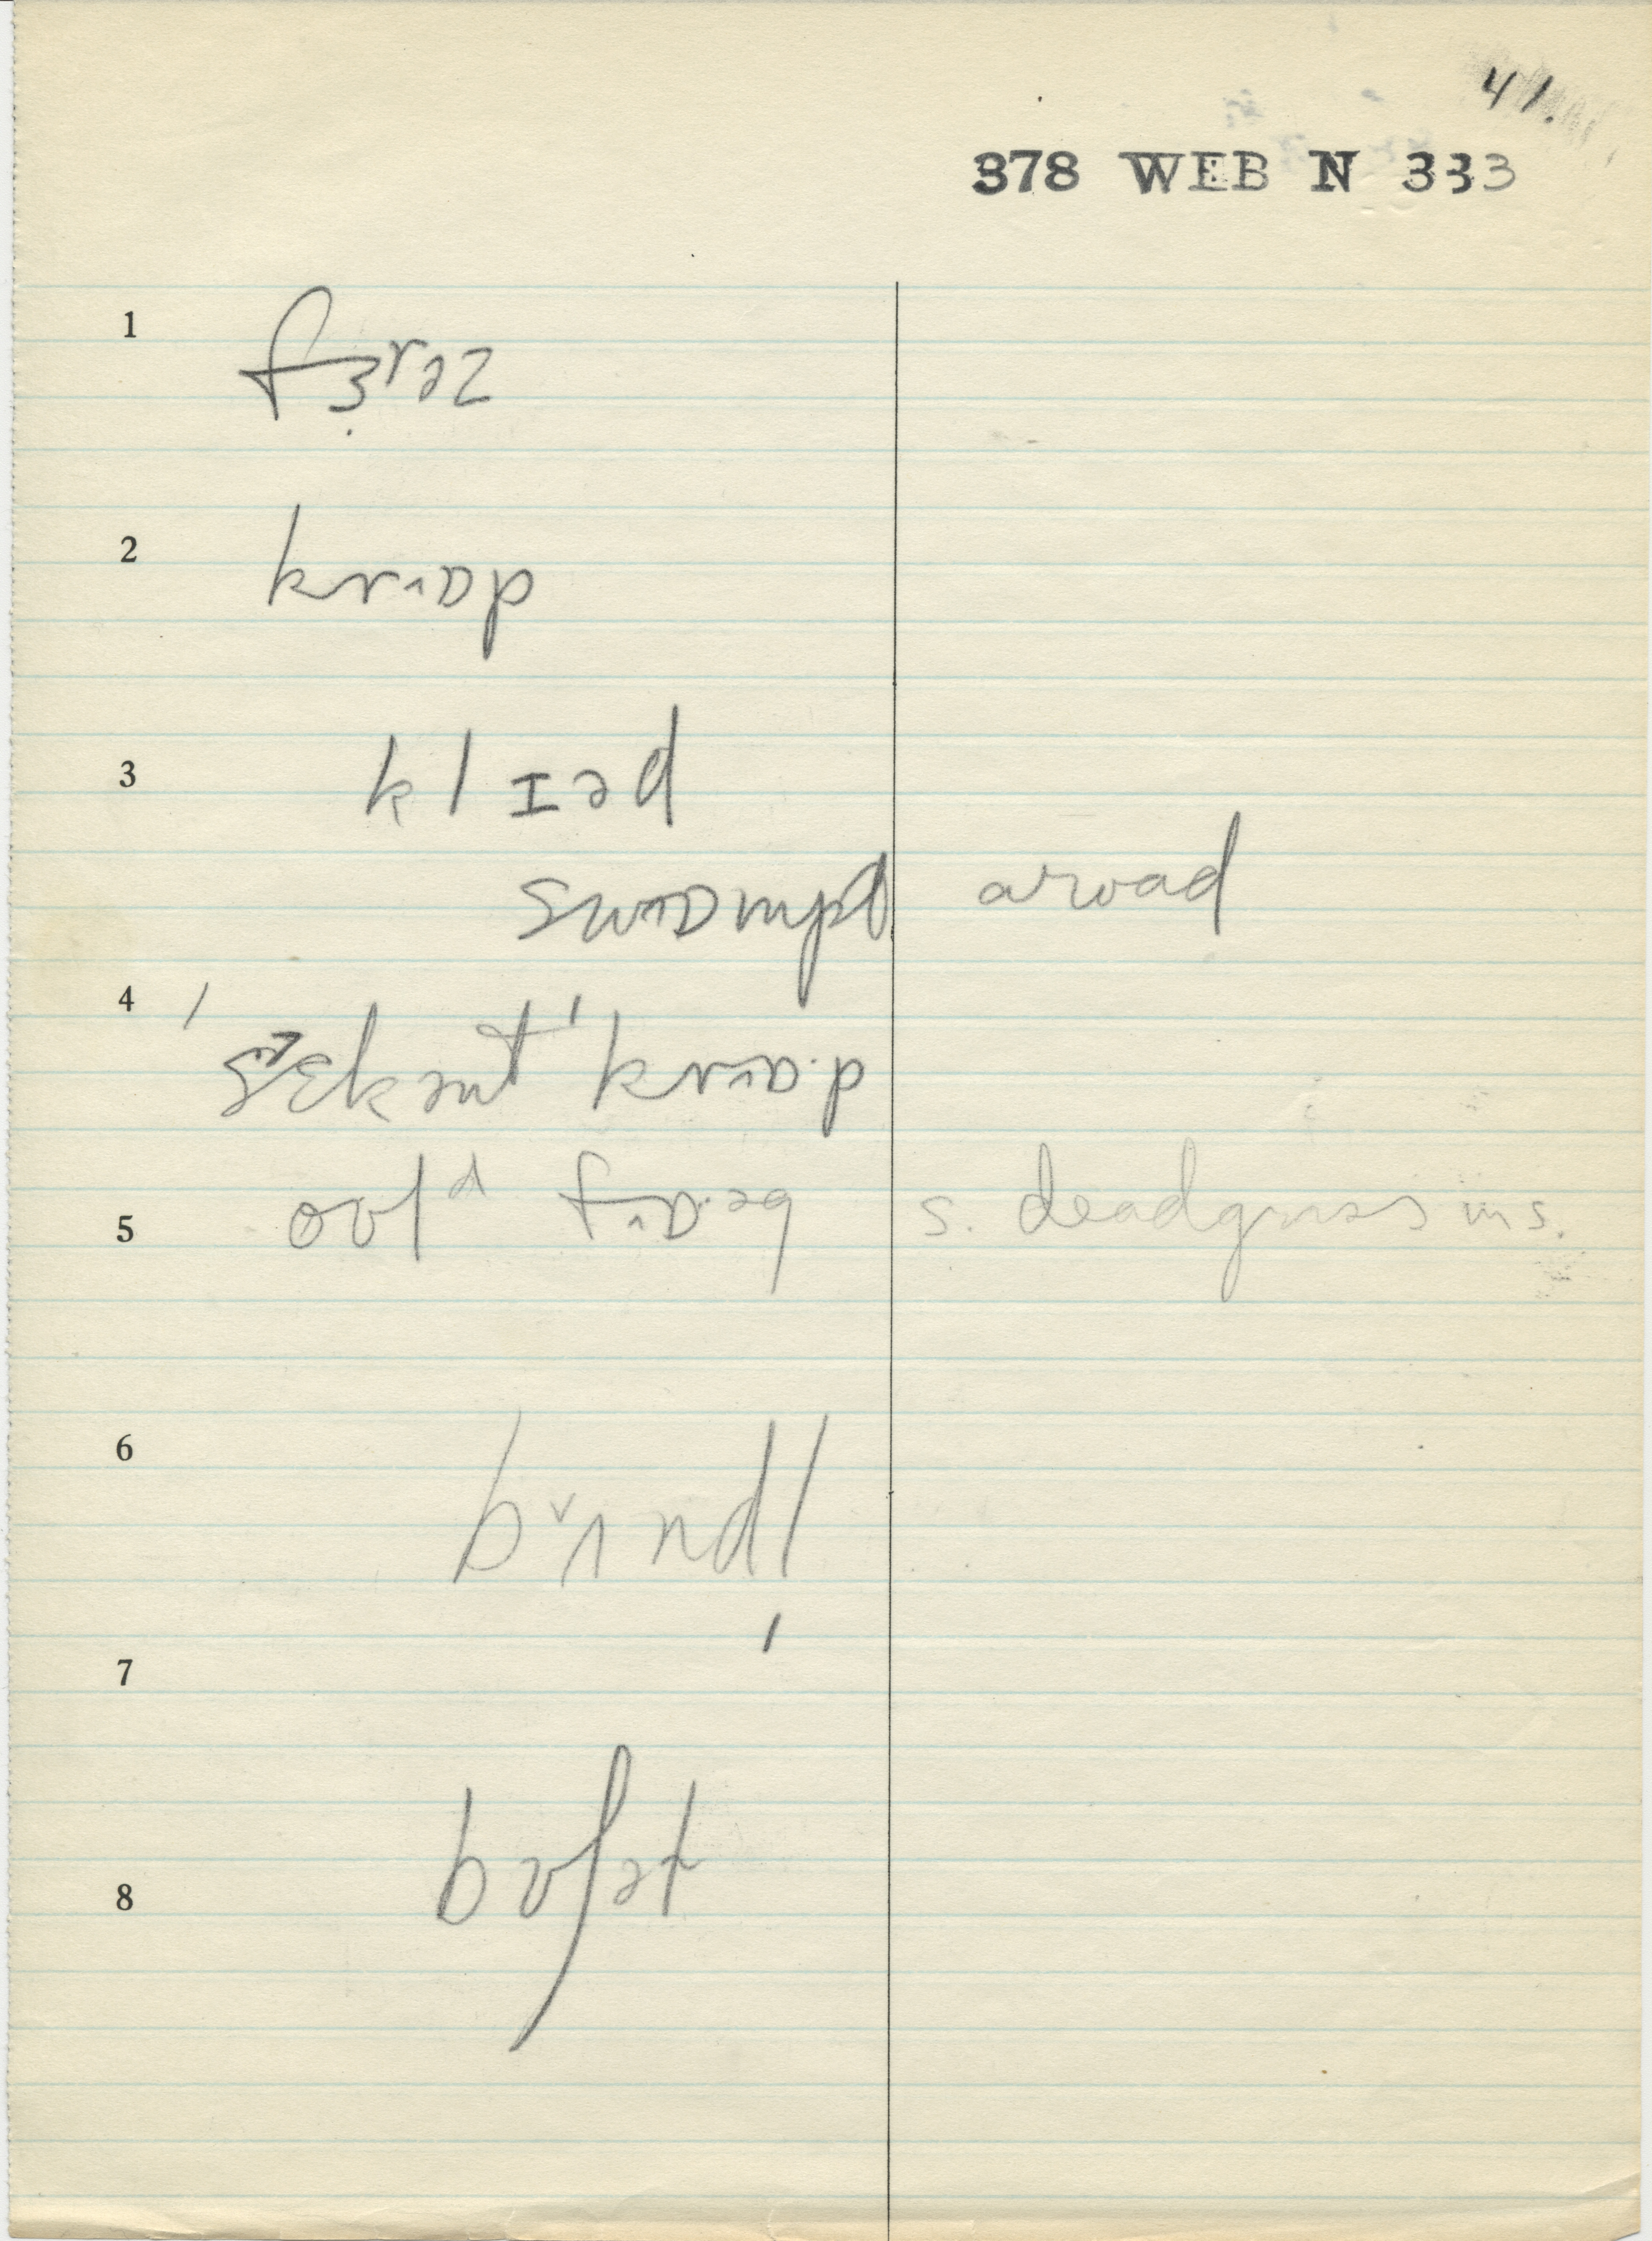 41.
378 WEB N 333
1 fɜrəz
2 krɒp
3 klɪəd
swɒmpɪ a road
4 ˈsɛkənt ˈkrɒ·p
5 oʊlᵈ fɒ·əg s. dead grass in s.
6 bʌndl
7
8 bʊʃət